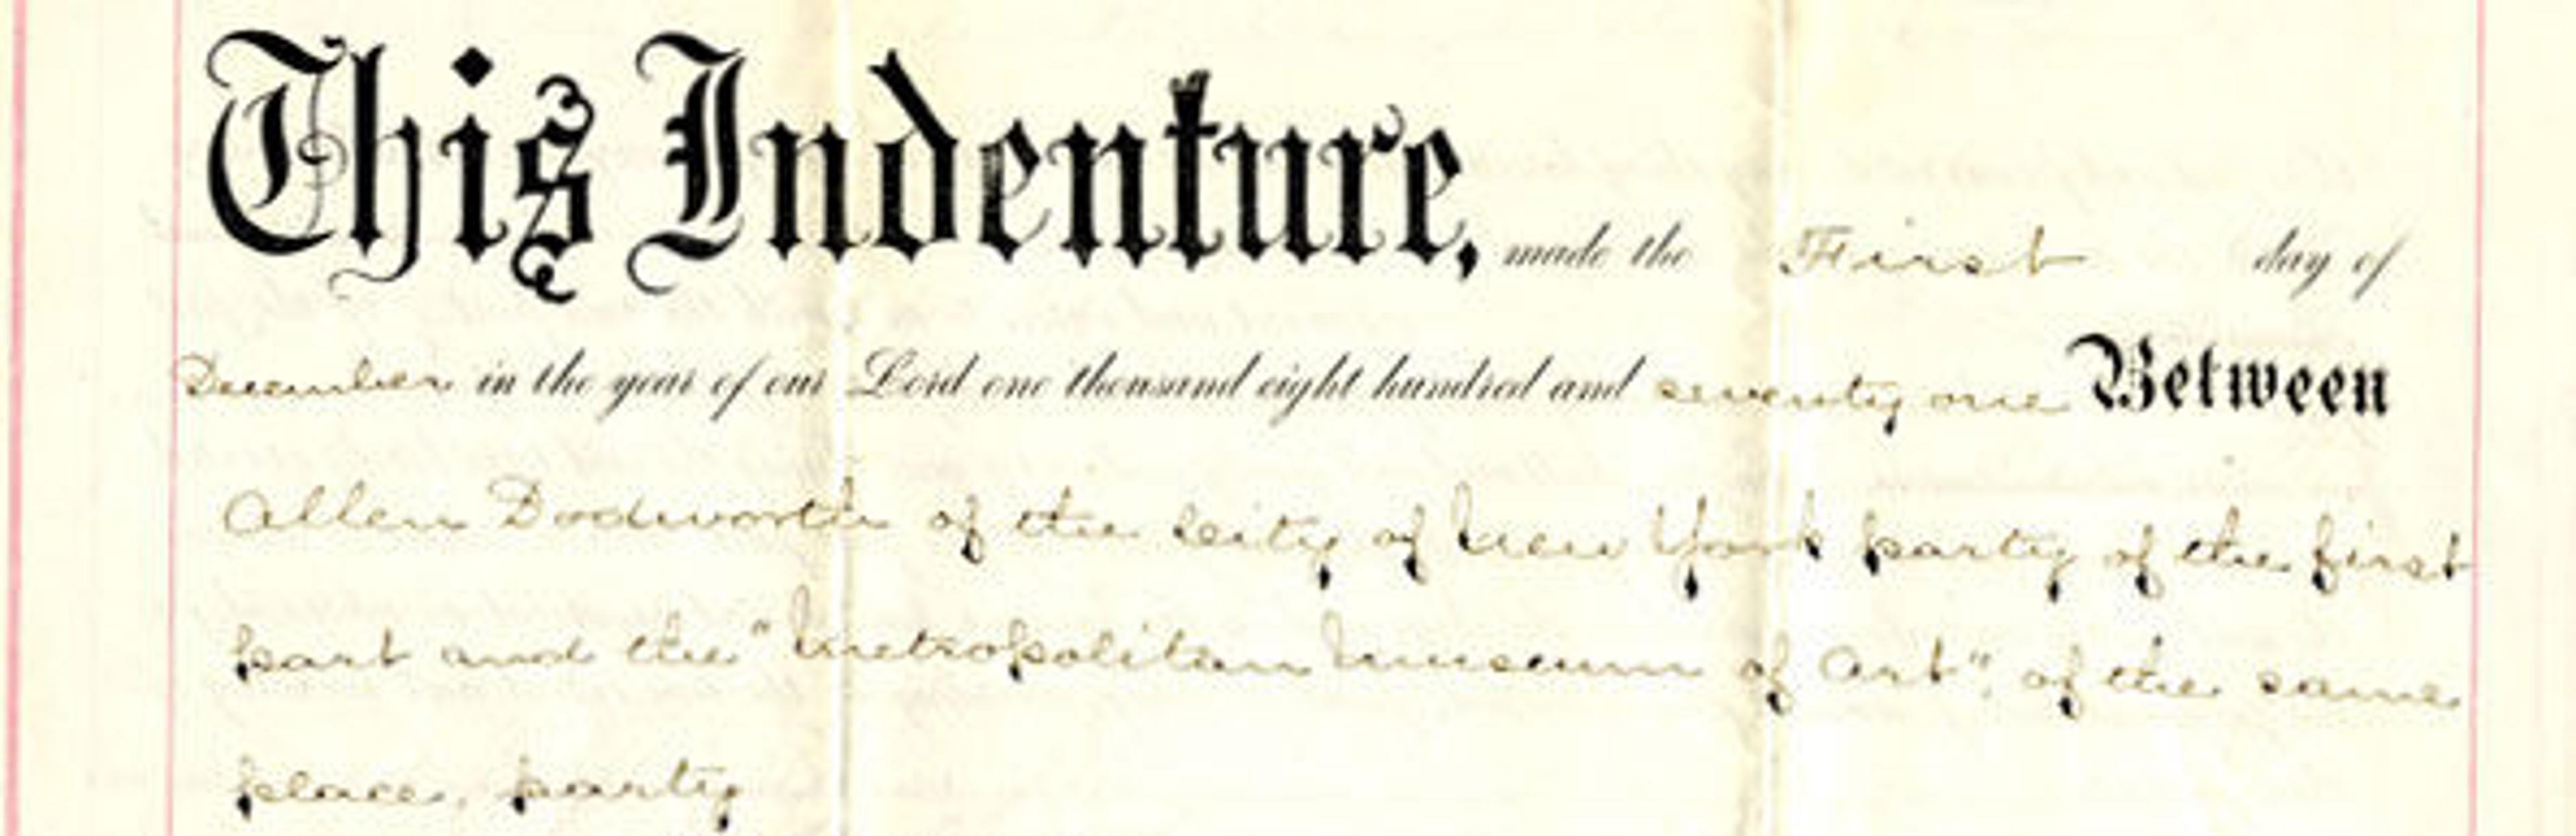 This Indenture, made the First day of
December in the year of our Lord one thousand eight hundred and seventy one Between
Allen Dodworth of the City of New York party of the first
part and the "Metropolitan Museum of Art", of the same
place, party